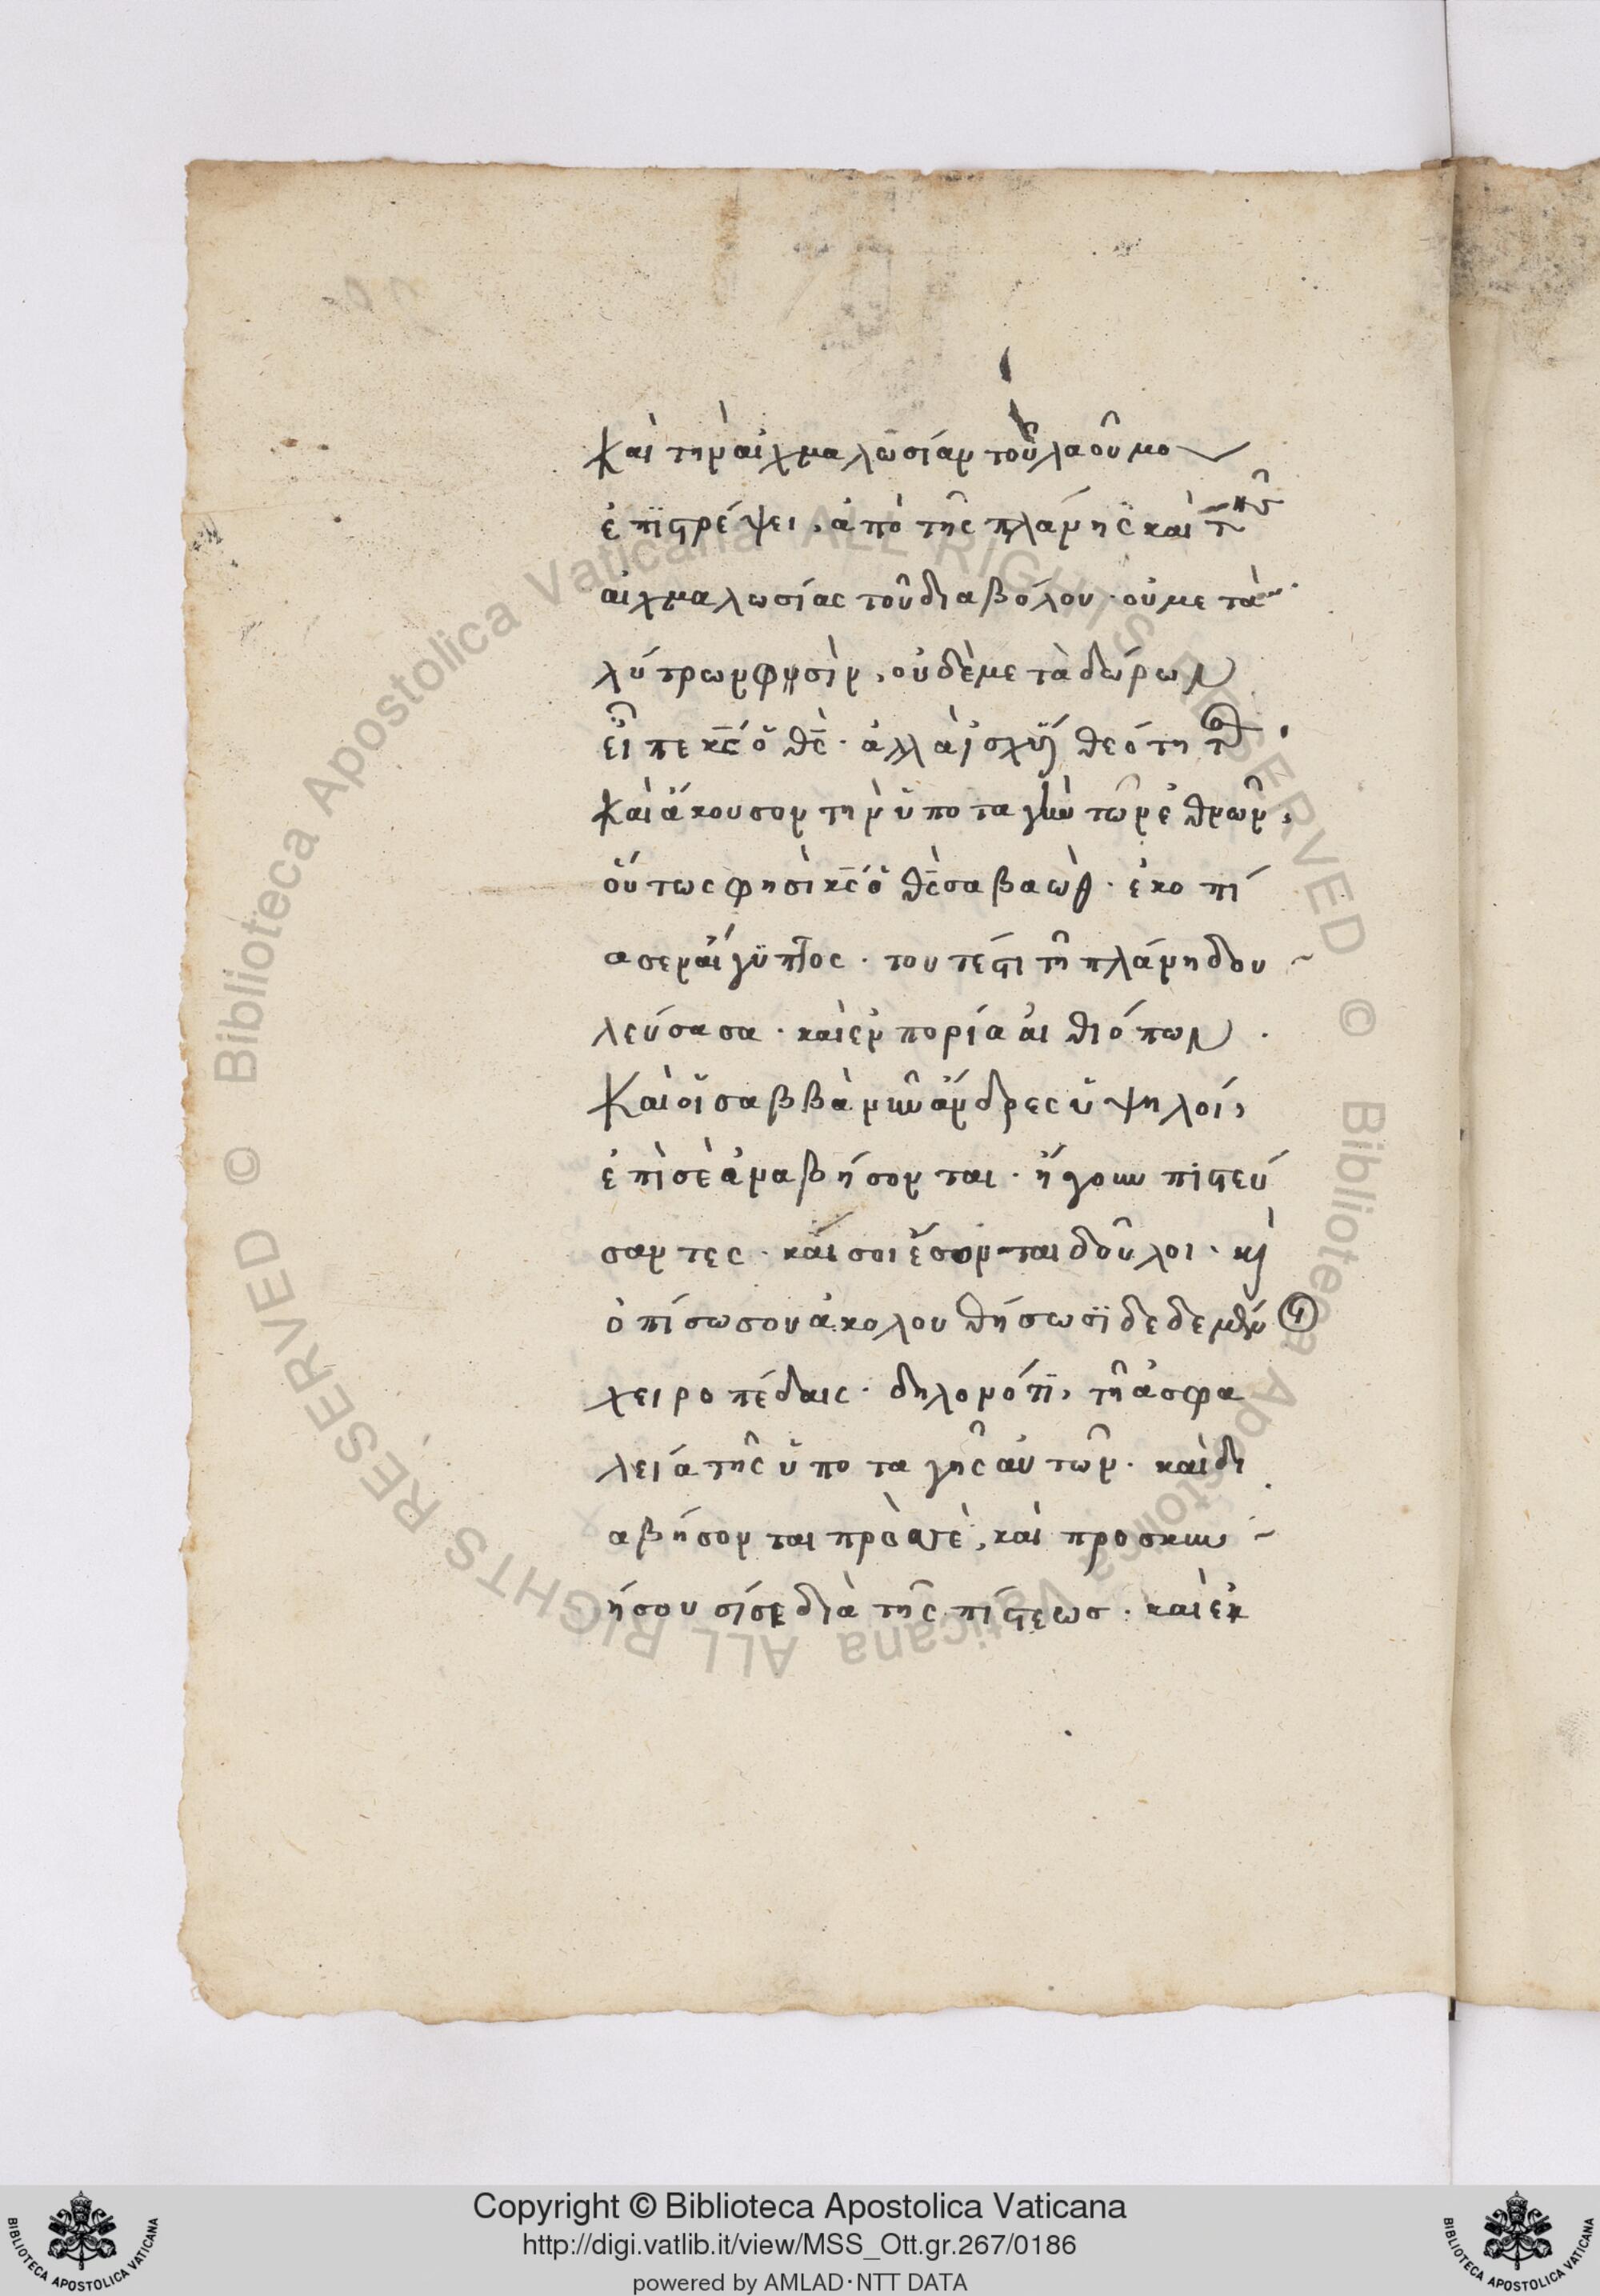 καὶ τὴν αἰχμαλωσίαν τοῦ λαοῦ μου
ἐπϊστρέψει, ἀπὸ τῆς πλάνης καὶ τῆς
αἰχμαλωσίας τοῦ διαβόλου · οὐ μετὰ
λύτρων φησὶν, οὐδὲ μετὰ δώρων
εἶπε κ̅ς̅ ὁ θ̅ς̅ · ἀλλὰ ἰσχύϊ θεότητος,
καὶ ἄκουσον τὴν ὑποταγὴν τῶν ἐθνῶν,
οὕτως φησὶ κ̅ς̅ ὁ θ̅ς̅ σαβαὼθ · ἐκοπί
ασεν αἴγϋπτος · τουτέστι τῆ πλάνη δου
λεύσασα · καὶ ἐνπορία αἰθιόπων ·
καὶ οἱ σαββὰ μὴν ἄνδρες ὑψηλοί,
ἐπὶ σὲ ἀναβήσονται · ἤγουν πιστεύ
σαντες · καί σοι ἔσονται δοῦλοι · καὶ
ὀπίσω σου ἀκολουθήσωσϊ δεδεμένοι
χειροπέδαις · δηλονότϊ, τῆ ἀσφα
λεία τῆς ὑποταγῆς αὐτῶν · καὶ δι
αβήσονται πρὸς σὲ, καὶ προσκυν
ήσουσί σε διὰ τῆς πίστεως · καὶ ἐκ
Copyright © Biblioteca Apostolica Vaticana
http://digi.vatlib.it/view/MSS_Ott.gr.267/0186
powered by AMLAD·NTT DATA